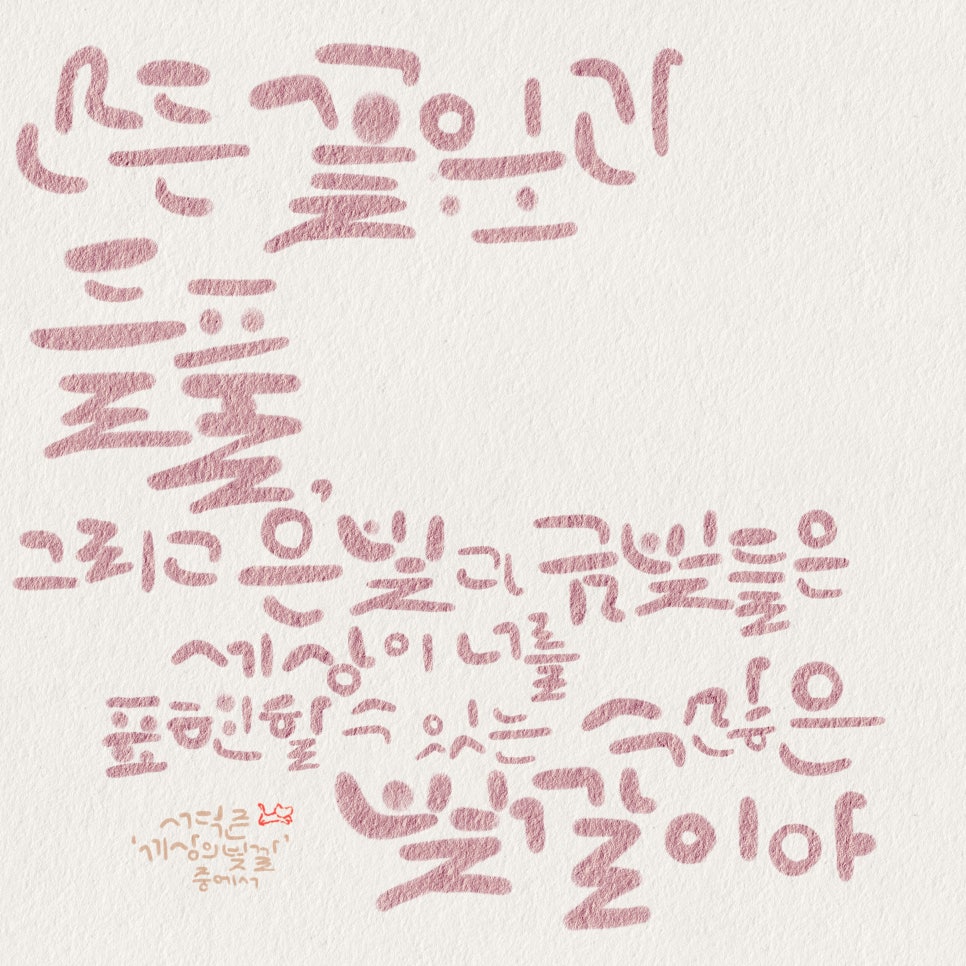 모든 꽃잎과
들풀,
그리고 은빛과 금빛들은
세상이 너를
표현할 수 있는 수많은
빛깔이야
서덕준
'세상의 빛깔'
중에서